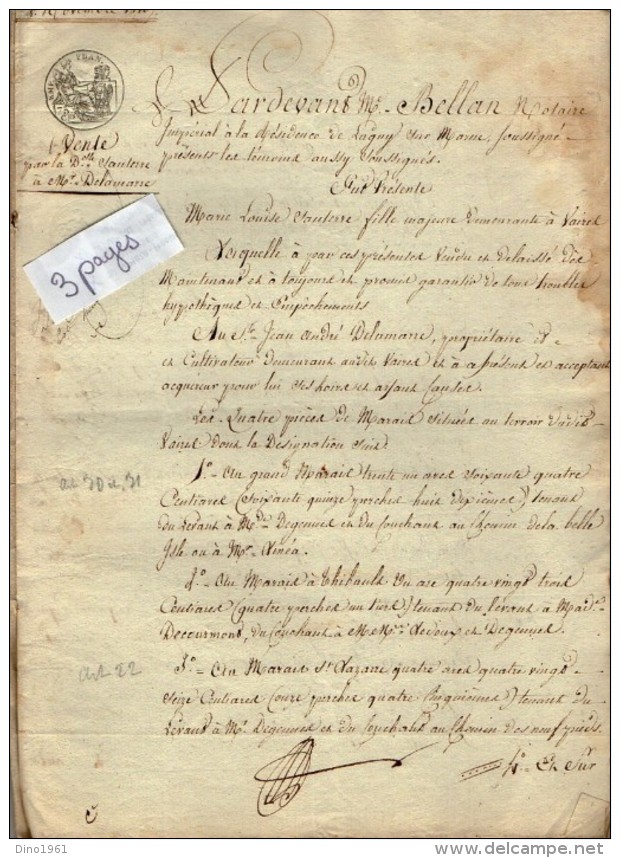 Vente
par la D.elle Santerre
à Mr. Delamarre
3 pages
Pardevant Me. Bellan Notaire
Impérial à la Résidence de Lagny sur Marne, soussigné
présents les témoins aussy soussignés.
Fut Présente
Marie Louise Santerre fille majeure demeurante à Vaires
Laquelle à par ces présentes Vendu et délaissé dès
Maintenant et à toujours et promet garantir de tous troubles
hypothèques et Empêchements
Au Sr. Jean André Delamarre, propriétaire et
et Cultivateur demeurant audit Vaires et à a présent et acceptant
acquéreur pour lui ses hoirs et ayant Causes.
Les Quatre pièces de Marais situées au terroir dudit
Vaires dont la Désignation suit.
art 30 et 31
1.o Au grand Marais trente un ares soixante quatre
Centiares (soixante quinze perches huit dixièmes) tenant
du Levant à Mde. Degennes et du Couchant au Chemin de la belle
Isle ou à Mr.
2.o Au Marais à Thibault Un are quatre vingt trois
Centiares (quatre perches un tiers) tenant du levant à Mad.e
Decourmond, du Couchant à M et Degennes.
art 22
3.o Au Marais St Lazare quatre ares quatre vingt
seize Centiares (onze perches quatre Cinquièmes) tenant du
Levant à Mr. Degennes et du Couchant au Chemin des neuf pieds.
4.o Et Sur
Dino1961